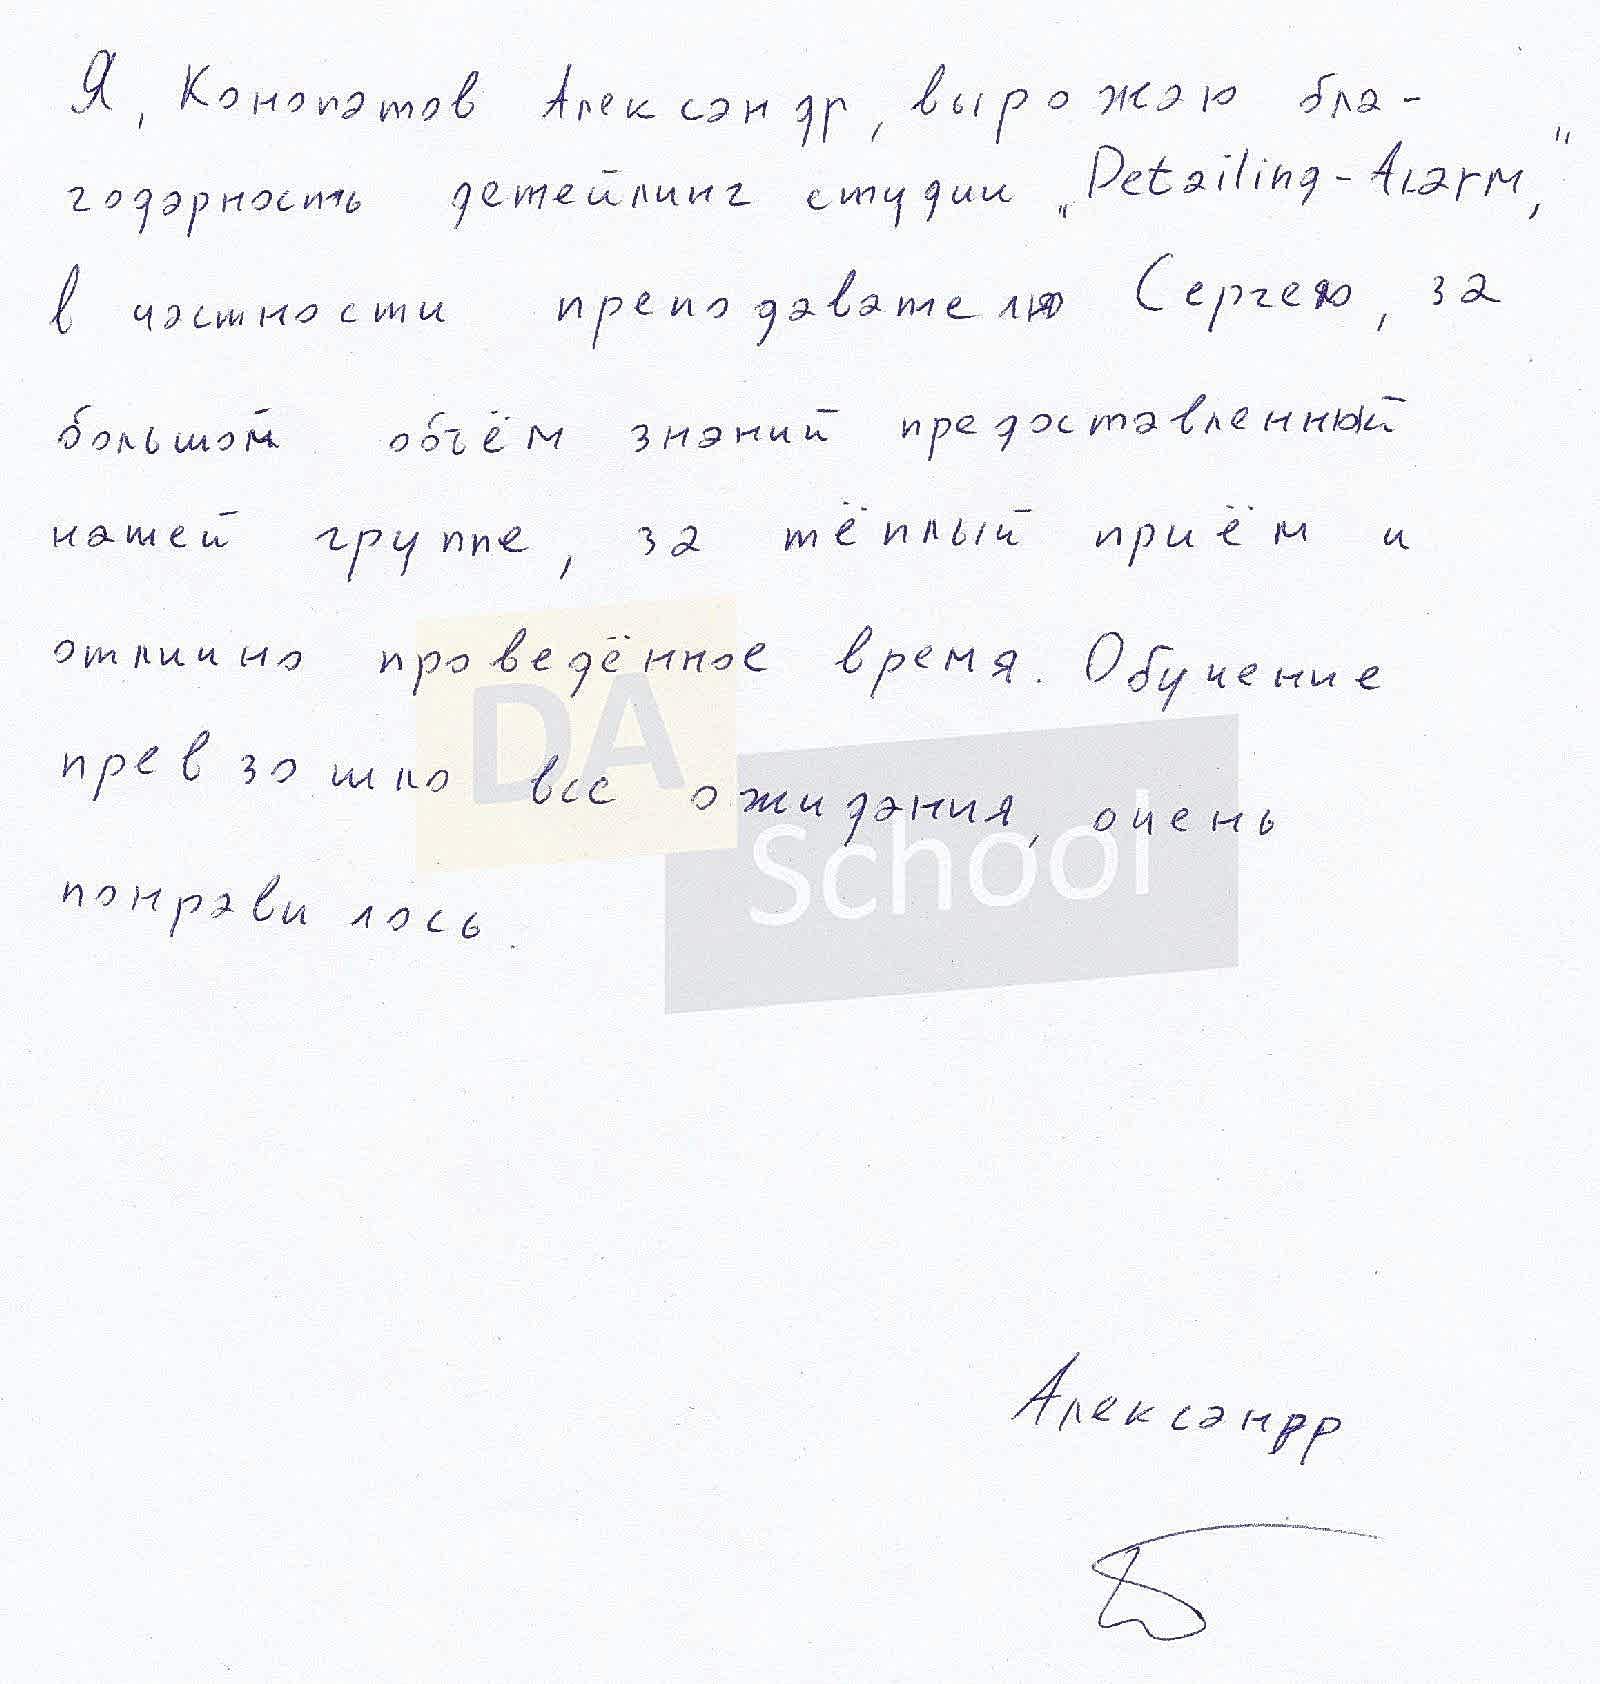 Я, Конопатов Александр, вырожаю бла-
годарность детейлинг студии „Detailing-Alarm,"
в частности преподавателю Сергею, за
большой объём знаний предоставленный
нашей группе, за тёплый приём и
отлично проведённое время. Обучение
превзошло все ожидания, очень
понравилось.
DA
School
Александр